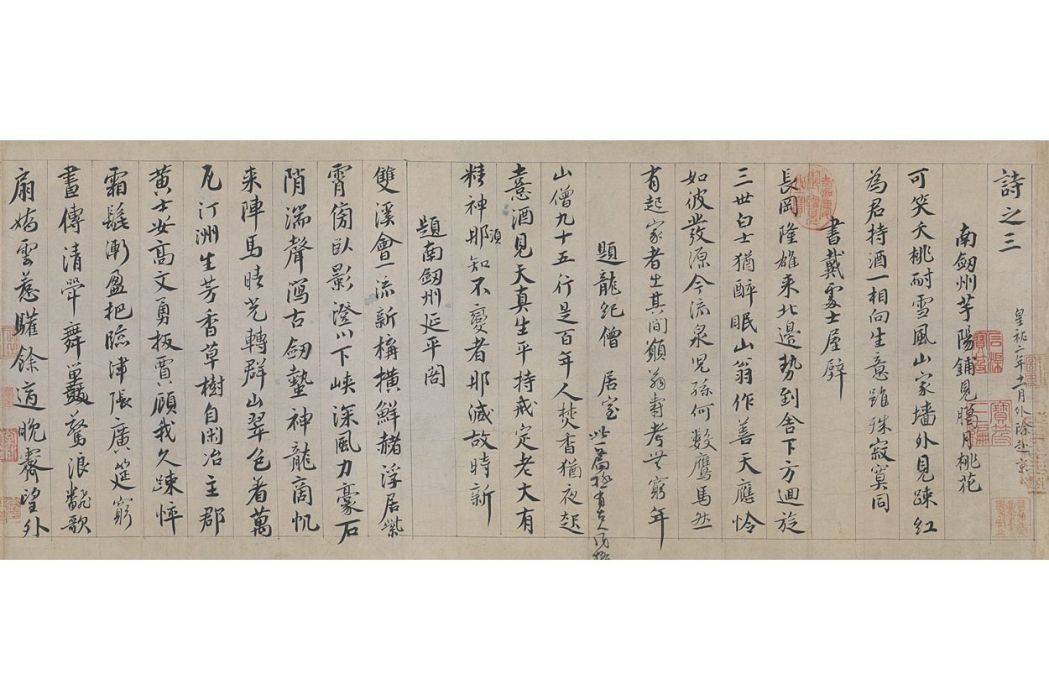 詩之三
皇祐二年十一月外除赴京
南劔州芋陽鋪見臘月桃花
可笑夭桃耐雪風山家墻外見疎紅
為君持酒一相向生意雖殊寂寞同
書戴處士屋壁
長岡隆雄來北邊勢到舍下方迴旋
三世白士猶醉眠山翁作善天應憐
如彼發源今流泉兒孫何數鷹馬然
有起家者生其間願翁壽考無窮年
題龍紀僧居室 此一篇極有古人風格
山僧九十五行是百年人焚香猶夜起
憙酒見天真生平持戒定老大有
精神耶須知不變者耶滅故時新
題南劔州延平閣
雙溪會一流新構橫鮮赭浮居紫
霄傍臥影澄川下峽深風力豪石
陗湍聲瀉古劔蟄神龍商帆
來陣馬晴光轉群山翠色着萬
瓦汀洲生芳香草樹自閑冶主郡
黄士安高文勇扳賈顧我久疎悴
霜髭漸盈把臨津張廣筵窮
晝傳清斝舞鬟驚浪翻歌
扇嬌雲惹驩餘適晚霽望外